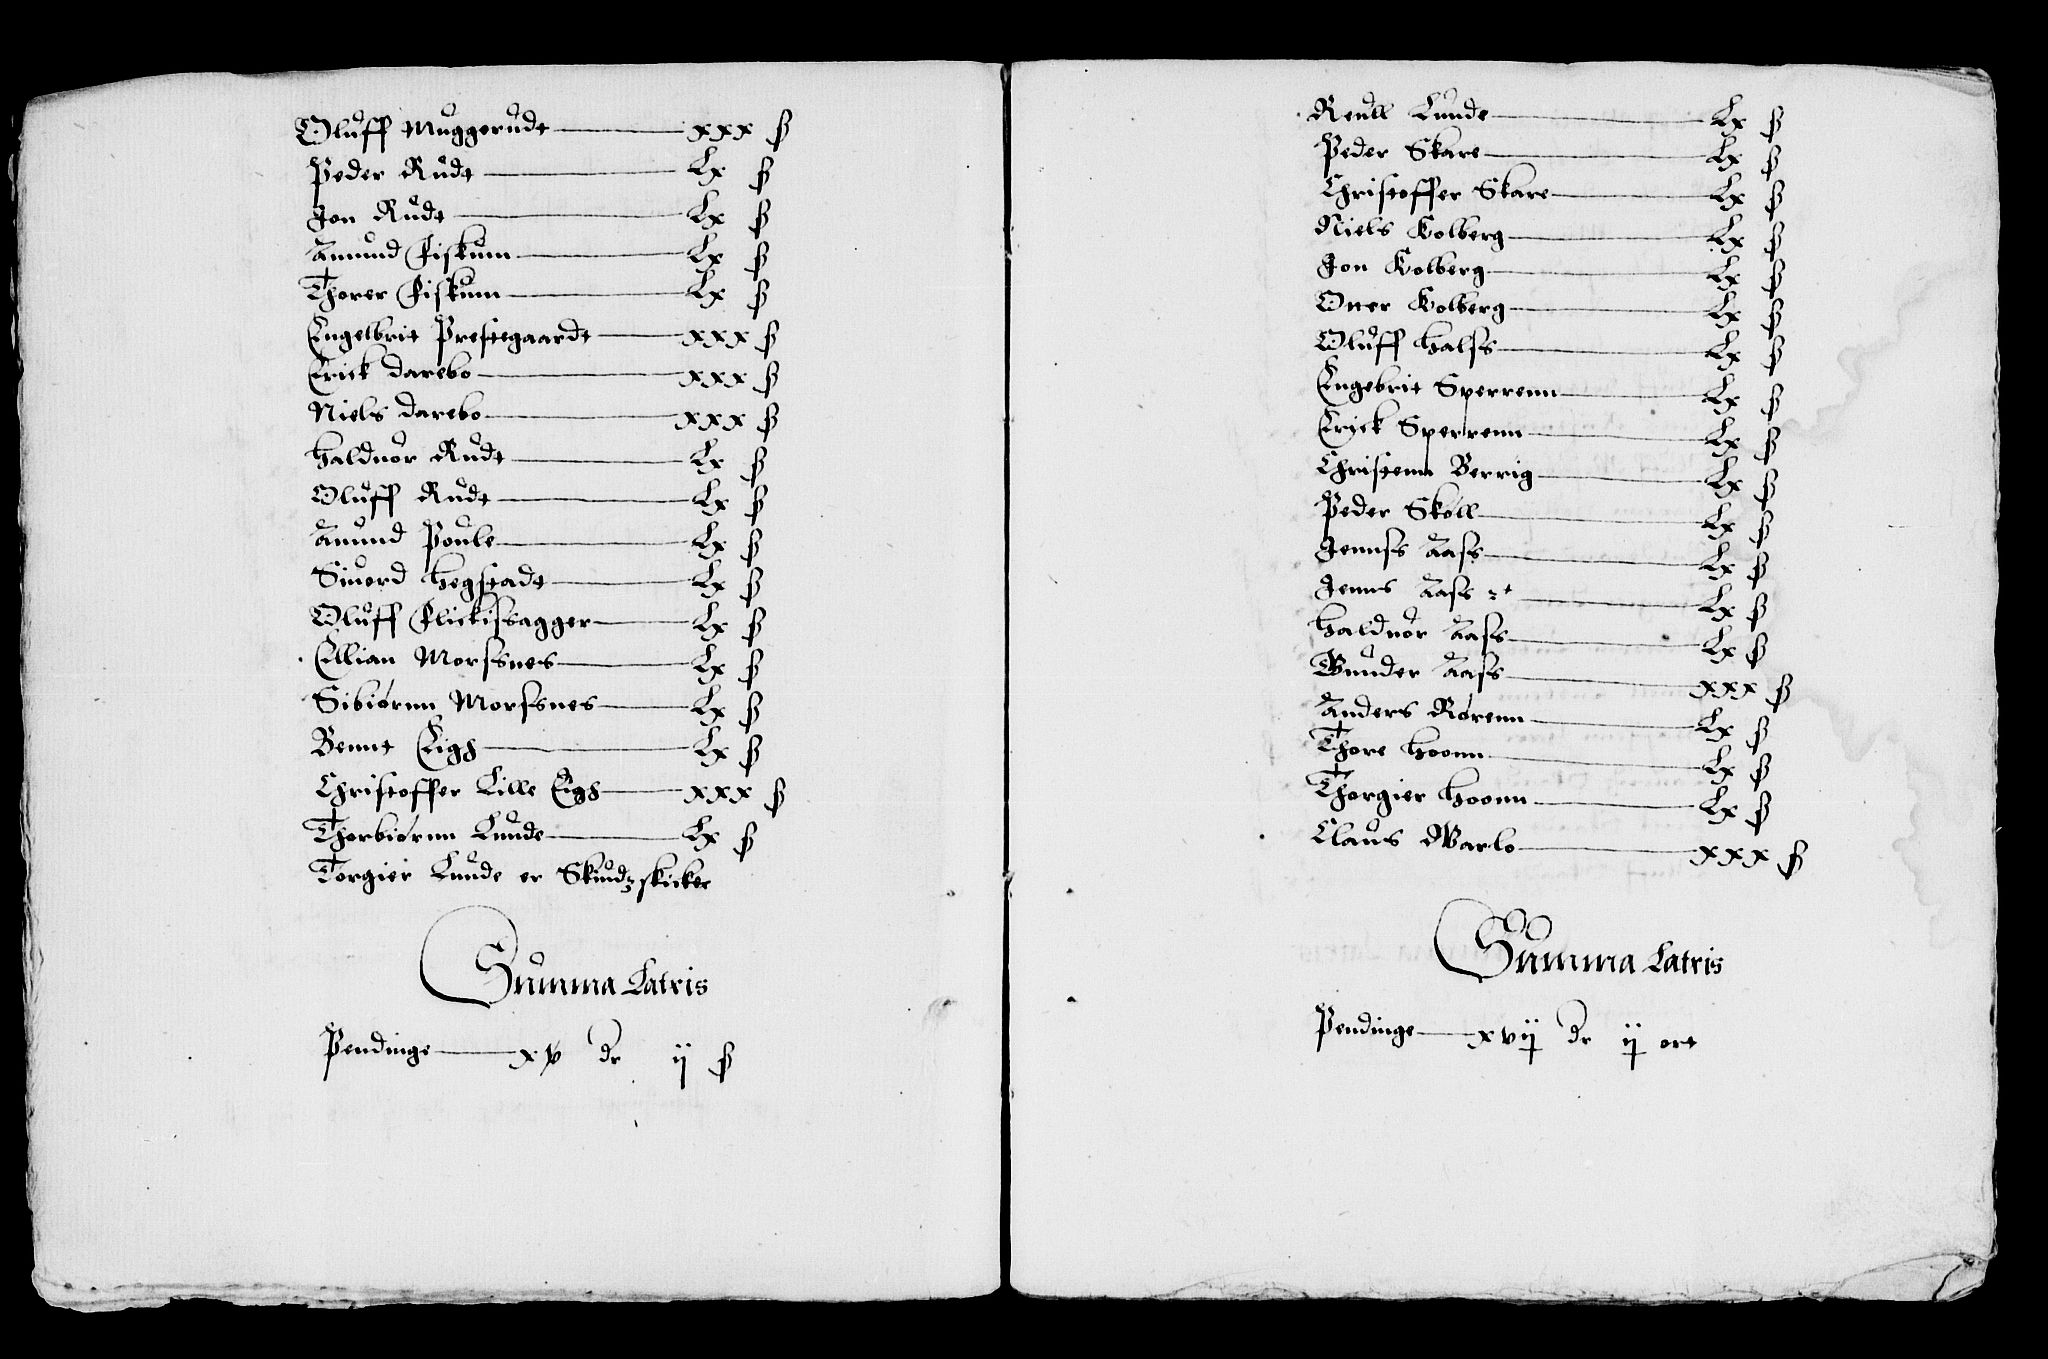 Oluff Muggerudt xxx ß
Peder Rudt Lx ß
Jon Rudt Lx ß
Amund Fiskum Lx ß
Thorer Fiskum Lx ß
Engelbrit Prestegaardt xxx ß
Erick Darebo xxx ß
Niels Darebo xxx ß
Halduor Rudt Lx ß
Oluff Rudt Lx ß
Amund Poule Lx ß
Siuord Hegstadt Lx ß
Oluff Flickissagger Lx ß
Ellian Morssnes Lx ß
Sibiørnn Morssnes Lx ß
Bennt Eigh Lx ß
Christoffer Lille Eigh xxx ß
Thorbiørnn Lunde Lx ß
Torgier Lunde er Skindzskicker
Summa Latris
Pendinge xv dr ij ß
Reull Lunde Lx ß
Peder Skare Lx ß
Christoffer Skare Lx ß
Niels Kolberg Lx ß
Jon Kolberg Lx ß
Oner Kolberg Lx ß
Oluff Halss Lx ß
Engebrit Sperrenn Lx ß
Eryck Sperrenn Lx ß
Christenn Berrig Lx ß
Peder Skoll Lx ß
Jennss Aass Lx ß
Jenns Aass Lx ß
Haldnor Aass Lx ß
Gunder Aass xxx ß
Anders Rørenn Lx ß
Thore Hoonn Lx ß
Thorgier Hoonn Lx ß
Claus Warlo xxx ß
Summa Latris
Pendinge xvij dr ij ort